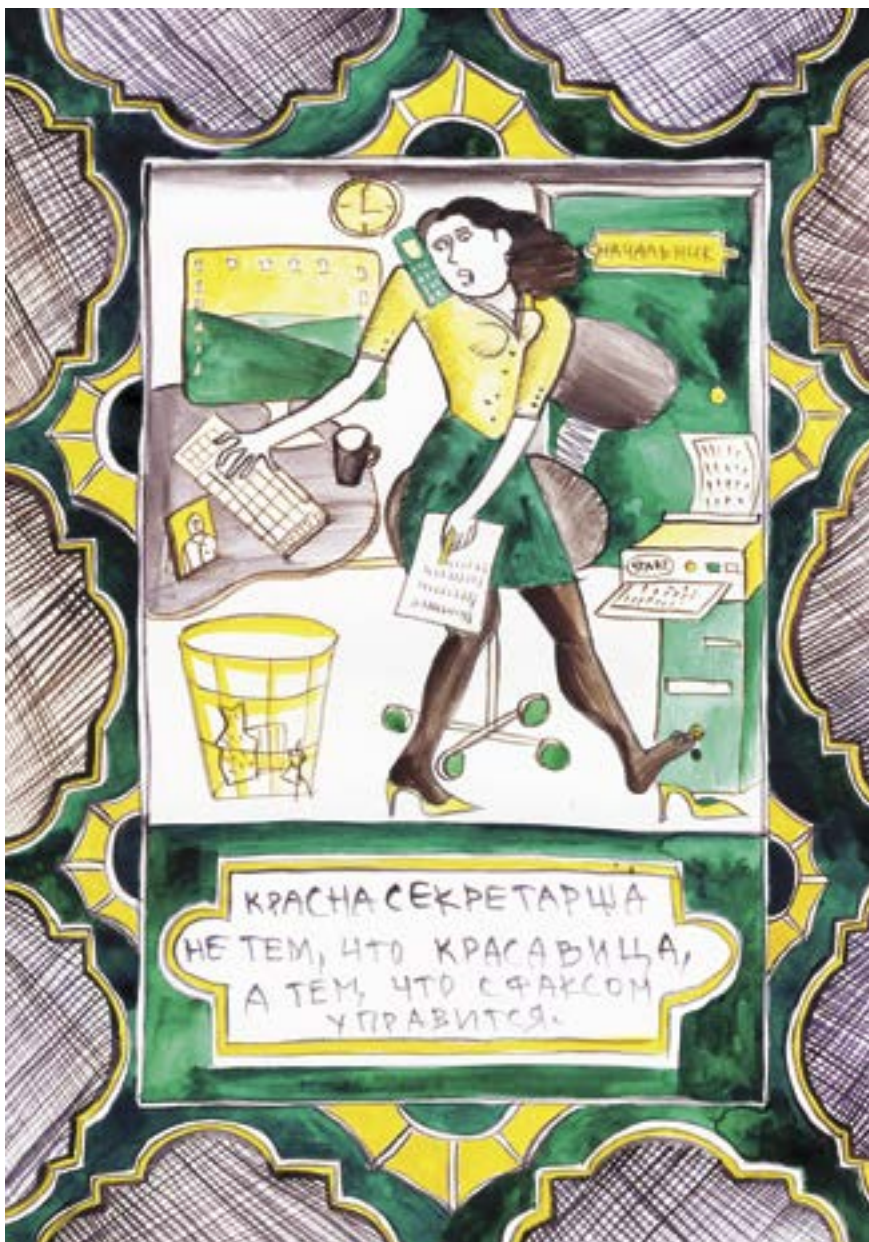 НАЧАЛЬНИК
START
КРАСНА СЕКРЕТАРША
НЕ ТЕМ, ЧТО КРАСАВИЦА,
А ТЕМ, ЧТО С ФАКСОМ
УПРАВИТСЯ.